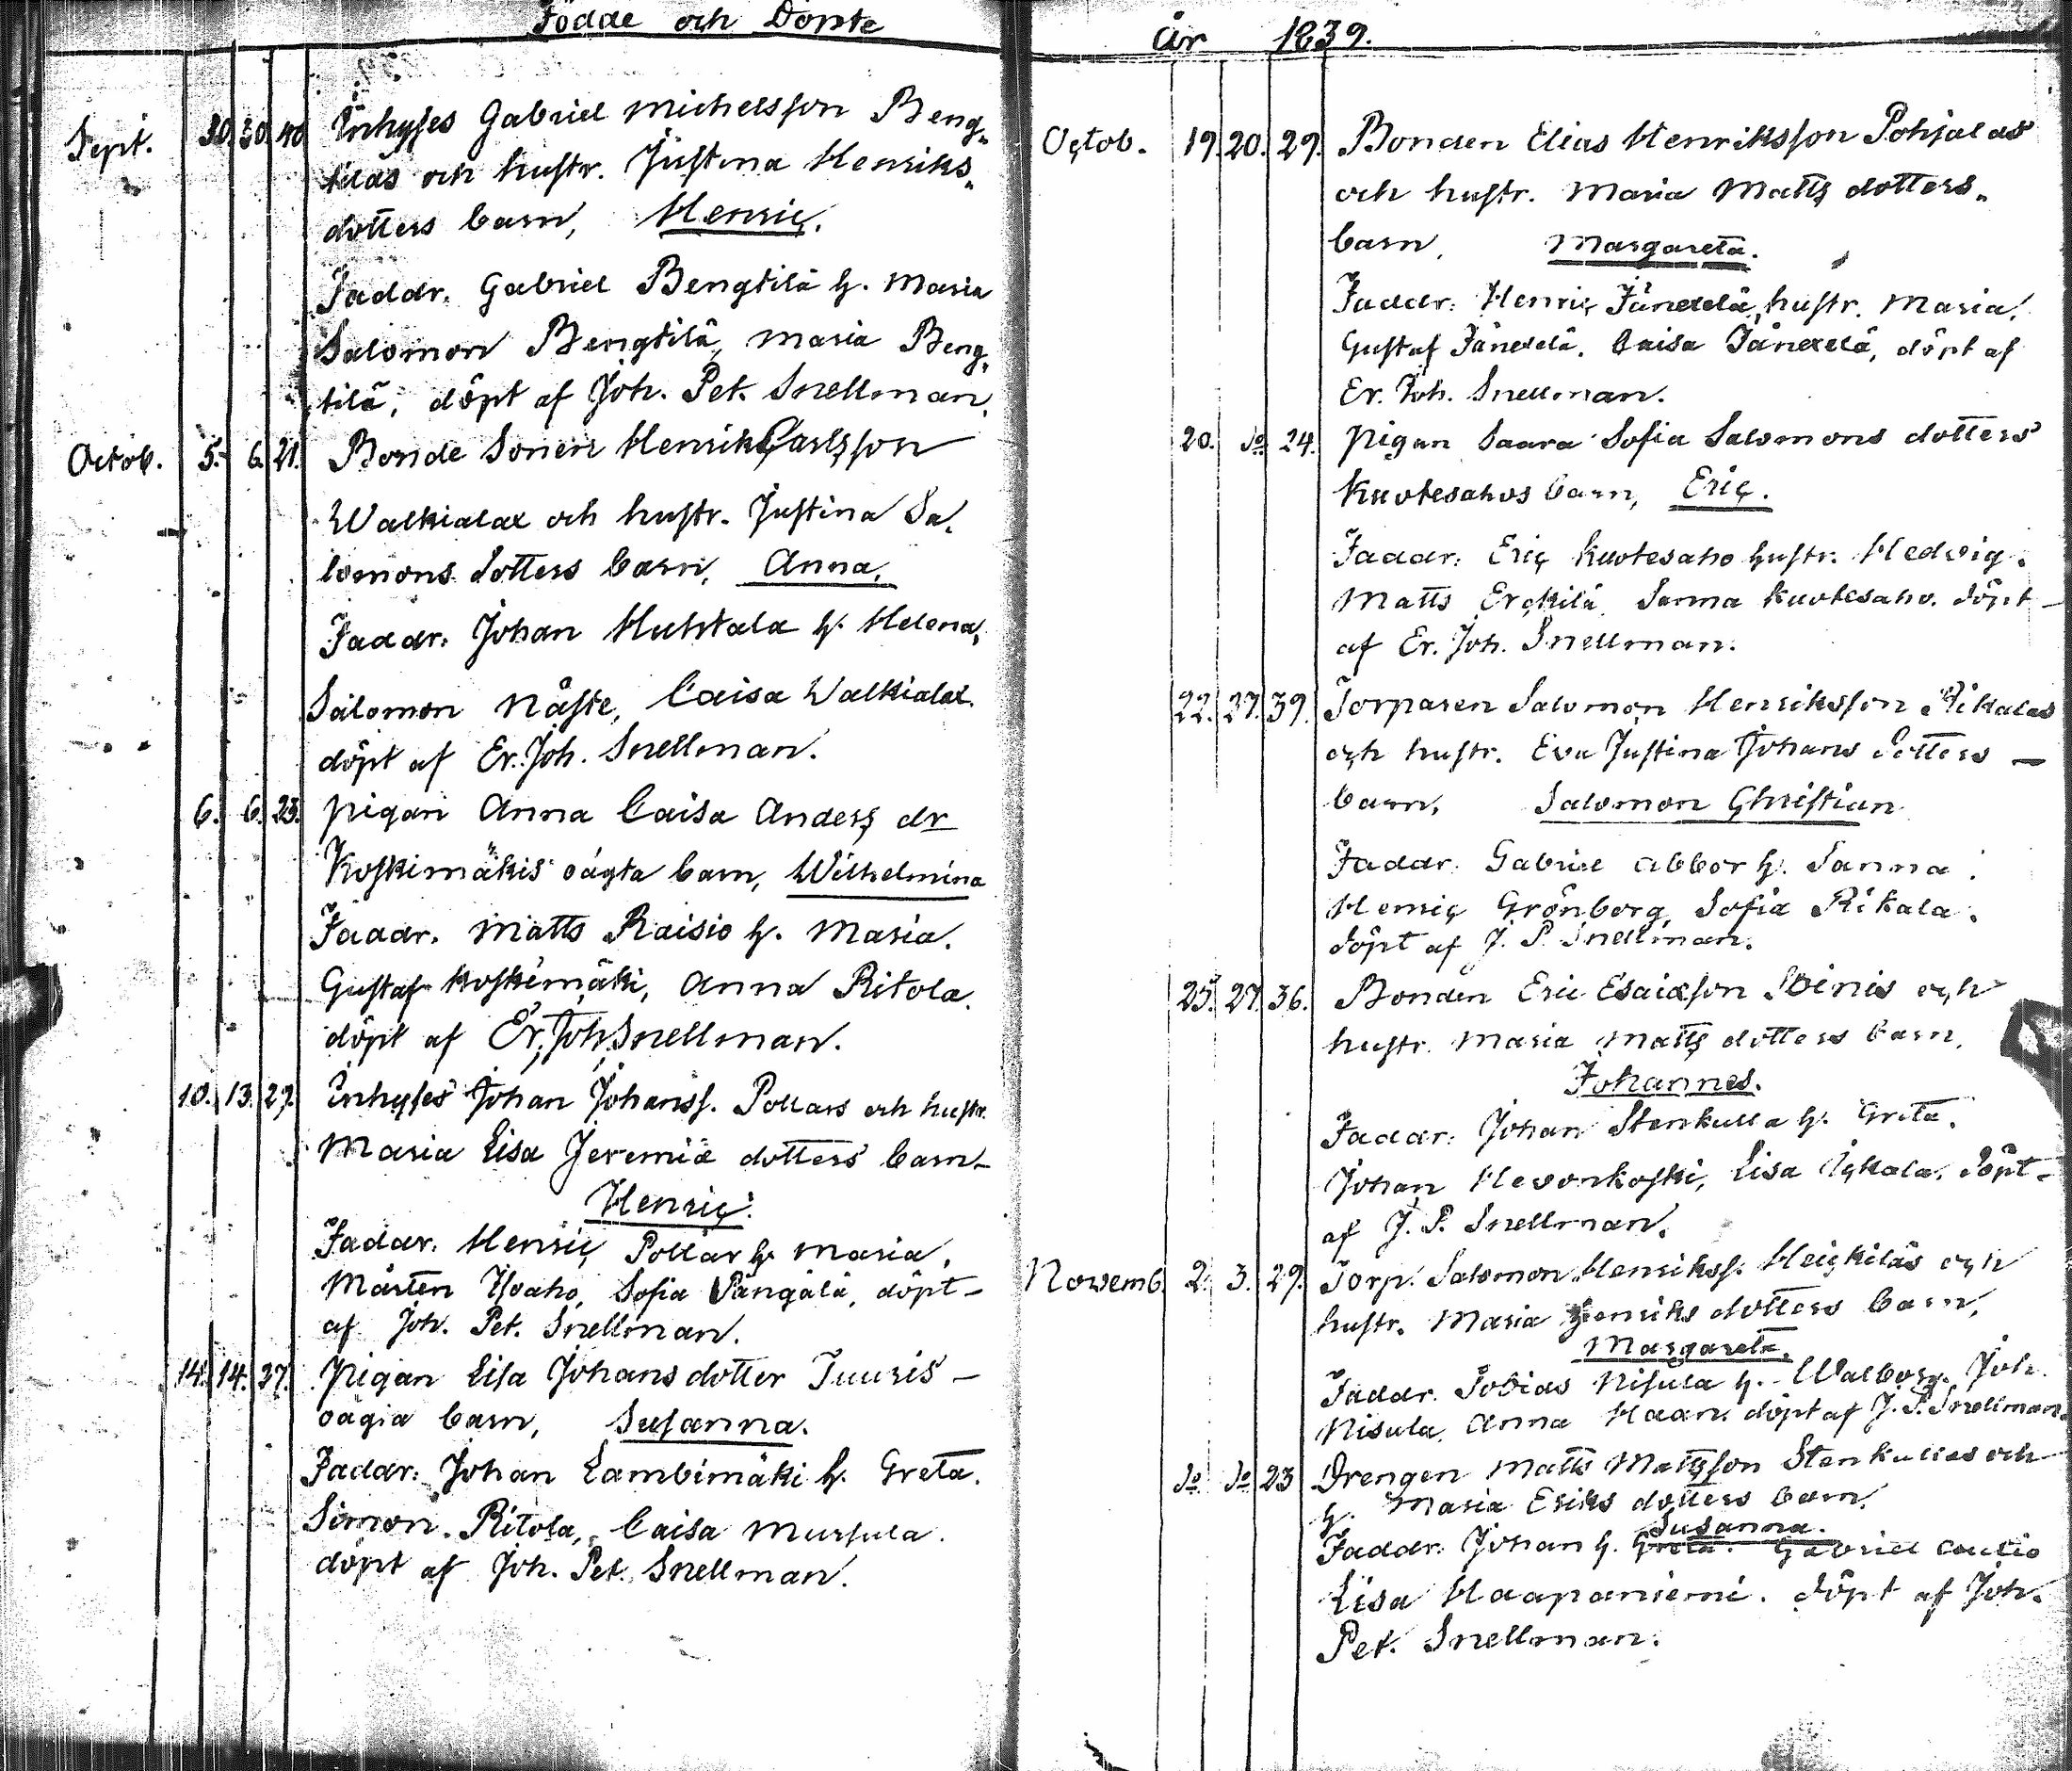 Födde och Döpte
Sept. 30. 30. 40 Inhyses Gabriel Michelsson Beng-
tilas och hustr. Justina Henriks-
dotters barn, Henric.
Faddr. Gabriel Bengtilä h. Maria
Salomon Bengtilä, Maria Beng-
tilä, döpt af Joh. Pet. Snellman.
Octob. 5. 6. 21. Bonde Sonen Henrik Carlsson
Walkialax och hustr. Justina Sa-
lomons dotters barn, Anna.
Faddr. Johan Huhtala h. Helena,
Salomon Nåste, Caisa Walkialax.
döpt af Er. Joh. Snellman.
6. 6. 23. pigan Anna Caisa Anders dr
Koskimäkis oägta barn, Wilhelmina
Faddr. Matts Raisio h. Maria.
Gustaf Koskimäki, Anna Ritola.
döpt af Er. Joh. Snellman.
10. 13. 29. Inhyses Johan Johanss. Pollars och hustr.
Maria Lisa Jeremiæ dotters barn-
Henric.
Faddr. Henric Pollar h. Maria,
Mårten Isoaho, Sofia Pängälä, döpt-
af Joh. Pet. Snellman.
14. 14. 37. Pigan Lisa Johans dotter Tuuris-
oägta barn, Susanna.
Faddr. Johan Lambimäki h. Greta.
Simon Ritola, Caisa Mursula.
döpt af Joh. Pet. Snellman.
år 1839.
Octob. 19. 20. 29. Bonden Elias Henriksson Pohjalas
och hustr. Maria Matts dotters-
barn, Margareta.
Faddr. Henric hustr. Maria.
Gustaf Caisa döpt af
Er. Joh. Snellman.
20. do 24. pigan Saara Sofia Salomons dotters
Kuotesahos barn, Eric.
Faddr. Eric Kuotesaho hustr. Hedvig.
Matts Erckilä Sanna Kuotesaho. döpt-
af Er. Joh. Snellman.
22. 27. 39. Torparen Salomon Henriksson Rikalas
och hustr. Eva Justina Johans dotters-
barn, Salomon Christian
Faddr. Gabriel Abbor h. Sanna.
Henric Grönberg, Sofia Rikala.
döpt af J. P. Snellman.
25. 27. 36. Bonden Eric Esaiæson och
hustr. Maria Matts dotters barn,
Johannes.
Faddr. Johan Stenkulla h. Greta.
Johan Hevonkoski, Lisa Ickala. döpt-
af J. P. Snellman.
Novemb. 2. 3. 29. Torp. Salomon Henrikss. Heickiläs och
hustr. Maria Henriks dotters barn,
Margareta.
Faddr. Tobias Nisula h. Walborg. Joh.
Nisula, Anna Haan. döpt af J. P. Snellman.
do do 23 Drengen Matts Mattsson Stenkullas och
h. Maria Eriks dotters barn.
Susanna.
Faddr. Johan h. Greta. Gabriel
Lisa Haapaniemi. döpt af Joh.
Pet. Snellman.